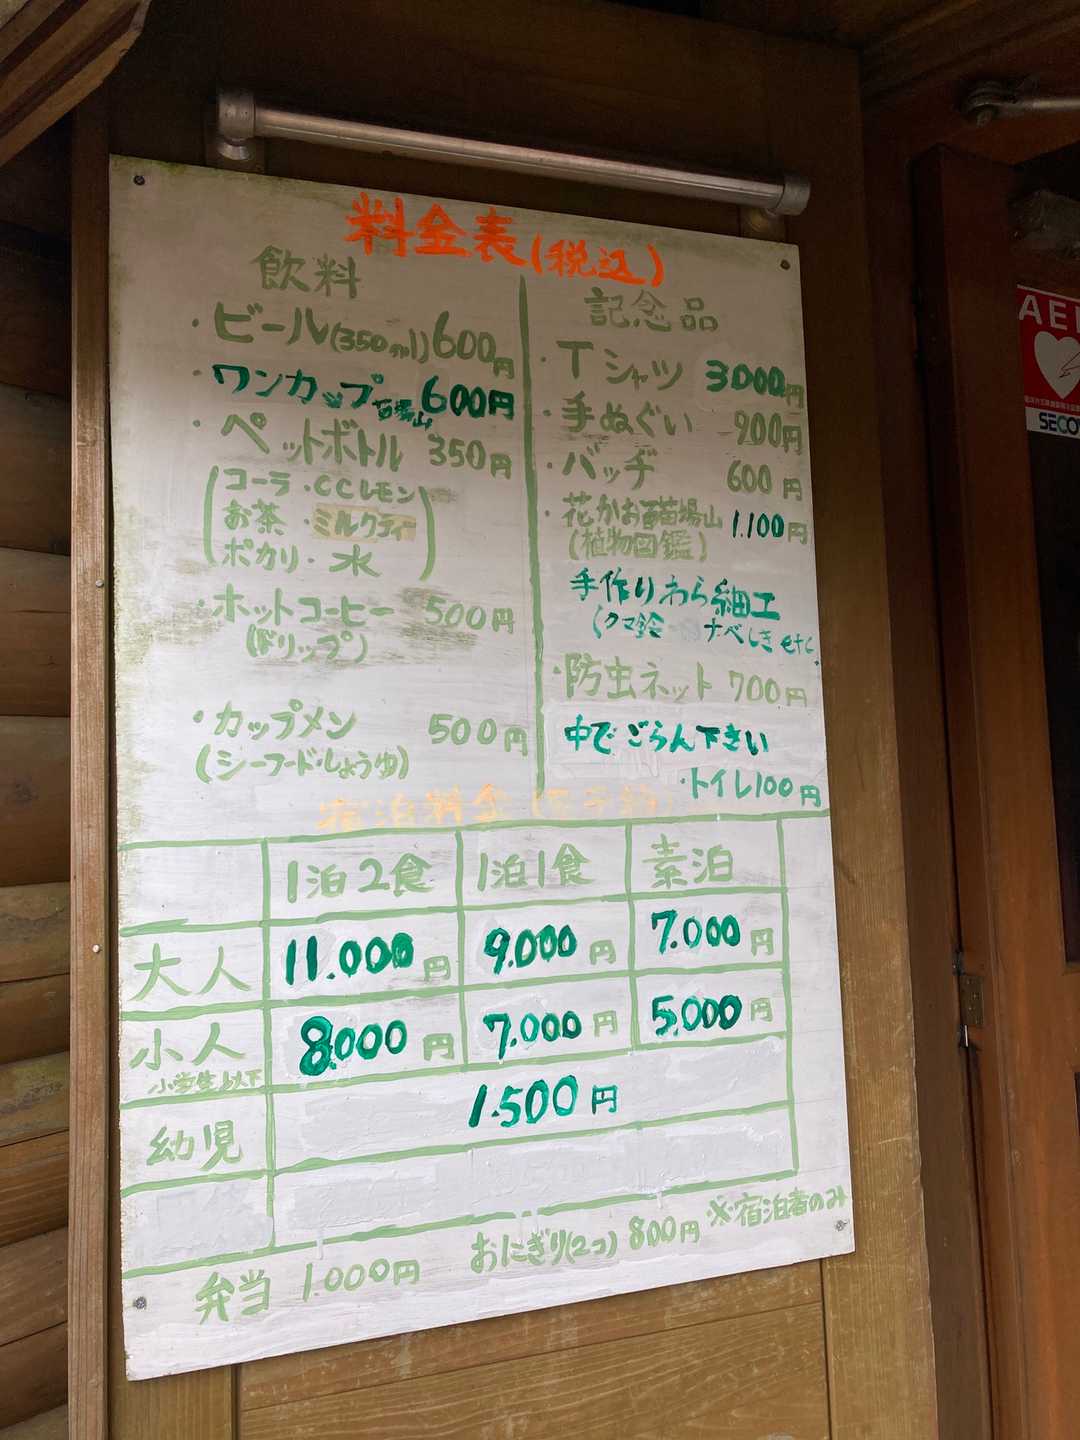 料金表(税込)
飲料
・ビール(350ml)600円
ワンカップ苗場山600円
・ペットボトル 350円
(コーラ・CCレモン
お茶・ミルクティー
ポカリ・水)
・ホットコーヒー 500円
(ドリップ)
・カップメン 500円
(シーフード・しょうゆ)
記念品
・Tシャツ 3000円
・手ぬぐい 900円
・バッヂ 600円
・花かお苗場山 1.100円
(植物図鑑)
手作りわら細工
(クマ鈴 ナベしき etc.
・防虫ネット 700円
中でごらん下さい
・トイレ100円
宿泊料金(要予約)
1泊2食 1泊1食 素泊
大人 11.000円 9.000円 7.000円
小人 8.000円 7.000円 5.000円
小学生以下
幼児 1.500円
弁当 1.000円 おにぎり(2コ) 800円 ※宿泊者のみ
AED
SECO